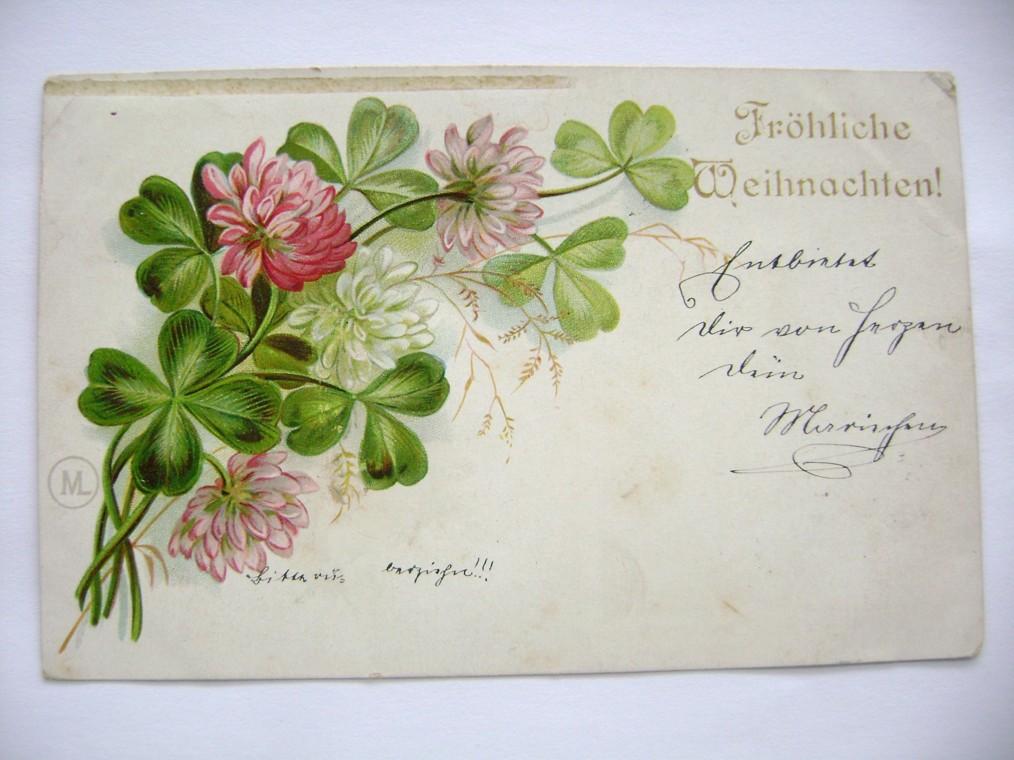 Fröhliche
Weihnachten!
Entbietet
Dir von Herzen
Dein
Mariechen
ML
Bitte